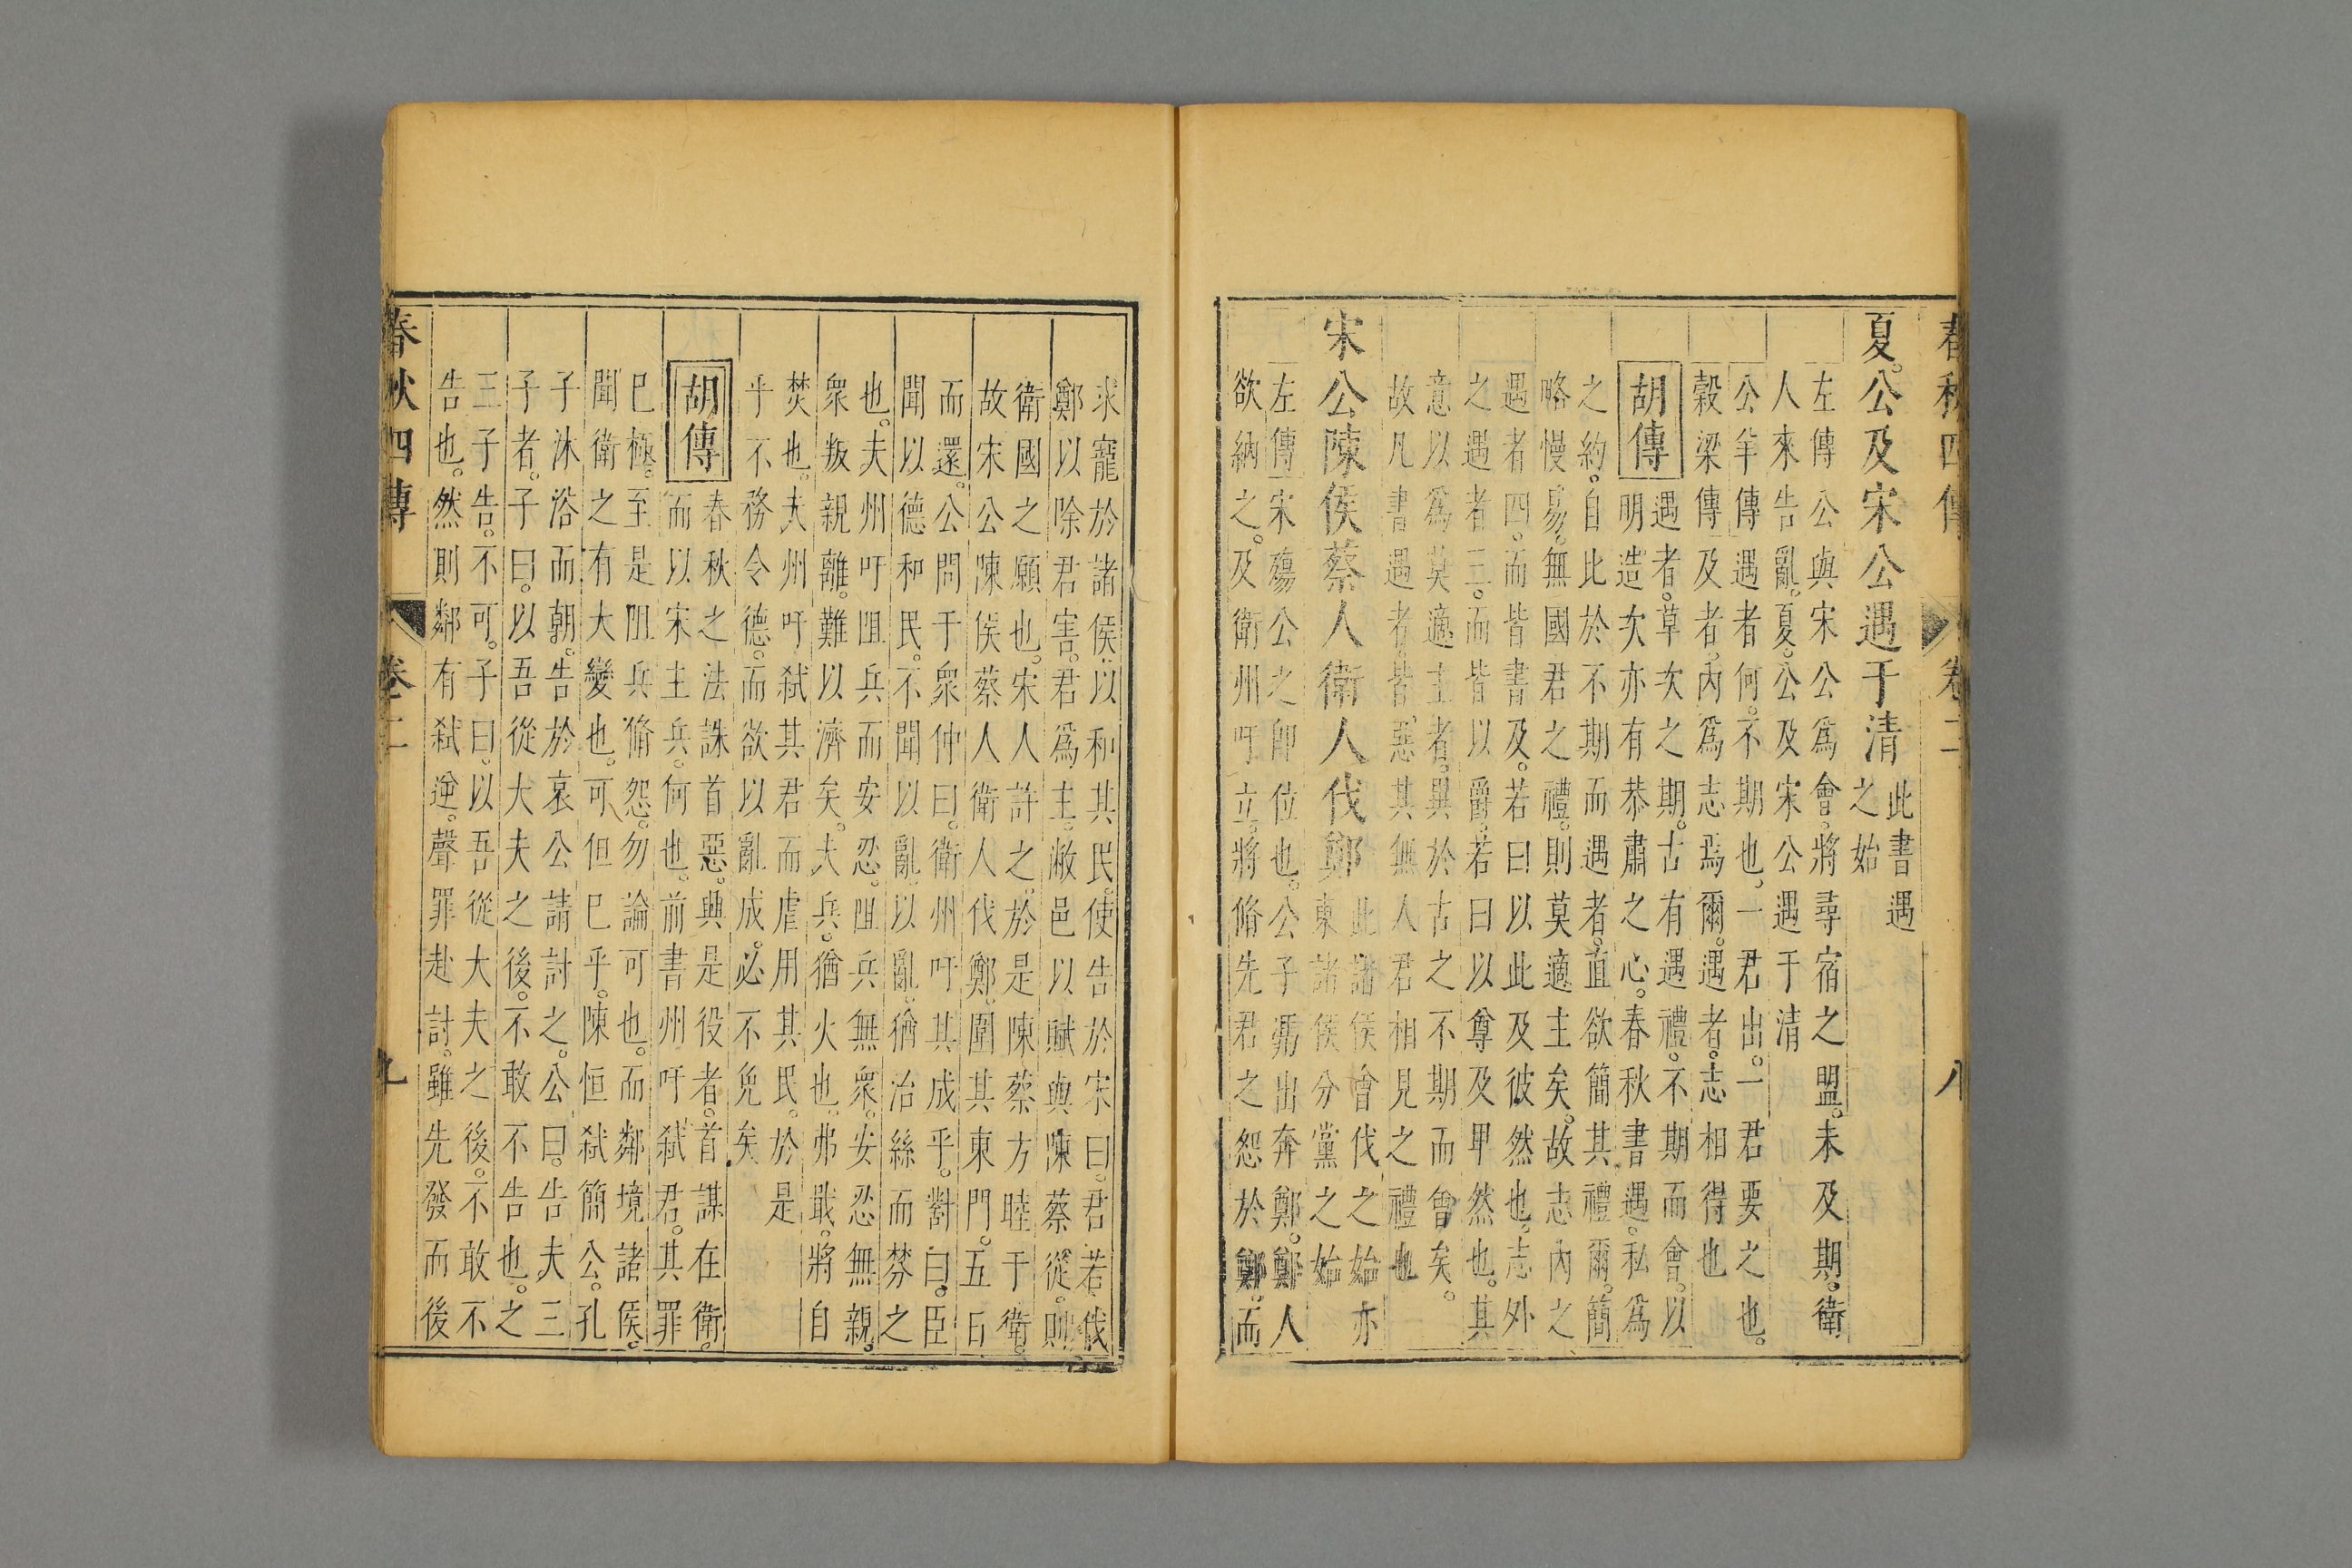 春秋四傳 卷二 八
夏。公及宋公遇于清
此書遇
之始
左傳公與宋公爲會。將尋宿之盟。未及期。衛
人來告亂。夏。公及宋公遇于清
公羊傳遇者何。不期也。一君出。一君要之也。
穀梁傳及者。內爲志焉爾。遇者。志相得也
胡傳
遇者。草次之期。古有遇禮。不期而會。以
明造次亦有恭肅之心。春秋書遇。私爲
之約。自比於不期而遇者。直欲簡其禮爾。簡
略慢易。無國君之禮。則莫適主矣。故志內之
遇者四。而皆書及。若曰以此及彼然也。志外
之遇者三。而皆以爵。若曰以尊及卑然也。其
意以爲莫適主者。異於古之不期而會矣。
故凡書遇者。皆惡其無人君相見之禮也
宋公陳侯蔡人衛人伐鄭
此諸侯會伐之始亦
東諸侯分黨之始
左傳宋殤公之卽位也。公子馮出奔鄭。鄭人
欲納之。及衛州吁立。將脩先君之怨於鄭。而
求寵於諸侯。以和其民。使告於宋曰。君若伐
鄭以除君害。君爲主。敝邑以賦與陳蔡從。則
衛國之願也。宋人許之。於是陳蔡方睦于衛。
故宋公陳侯蔡人衛人伐鄭。圍其東門。五日
而還。公問于衆仲曰。衛州吁其成乎。對曰。臣
聞以德和民。不聞以亂。以亂。猶治絲而棼之
也。夫州吁阻兵而安忍。阻兵無衆。安忍無親。
衆叛親離。難以濟矣。夫兵。猶火也。弗戢。將自
焚也。夫州吁弒其君而虐用其民。於是
乎不務令德。而欲以亂成。必不免矣
胡傳
春秋之法誅首惡。興是役者。首謀在衛。
而以宋主兵。何也。前書州吁弒君。其罪
已極。至是阻兵脩怨。勿論可也。而鄰境諸侯。
聞衛之有大變也。可但已乎。陳恒弒簡公。孔
子沐浴而朝。告於哀公請討之。公曰。告夫三
子者。子曰。以吾從大夫之後。不敢不告也。之
三子告。不可。子曰。以吾從大夫之後。不敢不
告也。然則鄰有弒逆。聲罪赴討。雖先發而後
春秋四傳 卷二 九